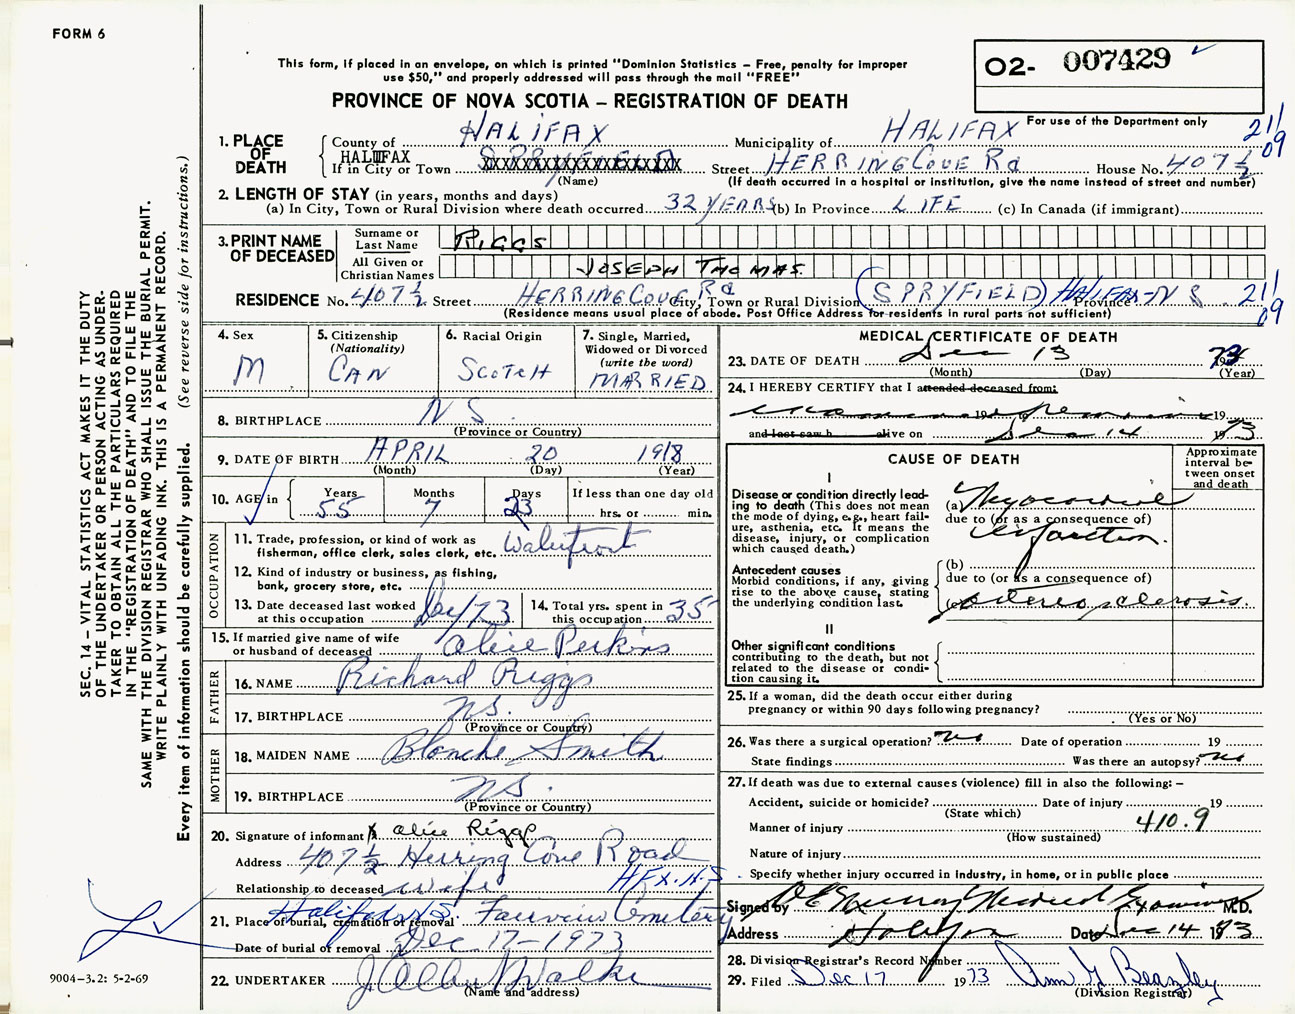 FORM 6
This form, if placed in an envelope, on which is printed "Dominion Statistics – Free, penalty for improper
use $50," and properly addressed will pass through the mail "FREE"
PROVINCE OF NOVA SCOTIA – REGISTRATION OF DEATH
O2- 007429
For use of the Department only
211
09
1. PLACE OF DEATH
County of HALIFAX Municipality of HALIFAX
HALIFAX
If in City or Town Street HERRING COVE Rd House No. 407 ½
(Name) (If death occurred in a hospital or institution, give the name instead of street and number)
2. LENGTH OF STAY (in years, months and days)
(a) In City, Town or Rural Division where death occurred 32 YEARS (b) In Province LIFE (c) In Canada (if immigrant)
3. PRINT NAME OF DECEASED
Surname or Last Name RIGGS
All Given or Christian Names JOSEPH THOMAS
RESIDENCE No. 407 ½ Street HERRING COVE Rd City, Town or Rural Division (SPRYFIELD) HALIFAX - N S. Province 211
(Residence means usual place of abode. Post Office Address for residents in rural parts not sufficient) 09
4. Sex M
5. Citizenship (Nationality) CAN
6. Racial Origin SCOTCH
7. Single, Married, Widowed or Divorced (write the word) MARRIED
8. BIRTHPLACE N S.
(Province or Country)
9. DATE OF BIRTH APRIL 20 1918
(Month) (Day) (Year)
10. AGE in Years 55 Months 7 Days 23 If less than one day old
hrs. or min.
OCCUPATION
11. Trade, profession, or kind of work as fisherman, office clerk, sales clerk, etc. Waterfront
12. Kind of industry or business, as fishing, bank, grocery store, etc.
13. Date deceased last worked at this occupation Dec/73
14. Total yrs. spent in this occupation 35
15. If married give name of wife or husband of deceased Alice Perkins
FATHER
16. NAME Richard Riggs
17. BIRTHPLACE NS.
(Province or Country)
MOTHER
18. MAIDEN NAME Blanche Smith
19. BIRTHPLACE NS.
(Province or Country)
20. Signature of informant X Alice Riggs
Address 407 ½ Herring Cove Road
Relationship to deceased wife HFX. N.S.
21. Place of burial, cremation or removal Halifax N.S. Fairview Cemetery
Date of burial or removal Dec 17-1973
22. UNDERTAKER J Allan Walke
(Name and address)
MEDICAL CERTIFICATE OF DEATH
23. DATE OF DEATH Dec 13 1973
(Month) (Day) (Year)
24. I HEREBY CERTIFY that I attended deceased from:
19 19
and last saw h alive on Dec 14 1973
CAUSE OF DEATH
Approximate interval between onset and death
I
Disease or condition directly leading to death (This does not mean the mode of dying, e.g., heart failure, asthenia, etc. It means the disease, injury, or complication which caused death.)
(a) Myocardial
due to (or as a consequence of)
infarction.
Antecedent causes
Morbid conditions, if any, giving rise to the above cause, stating the underlying condition last.
(b)
due to (or as a consequence of)
(c) arteriosclerosis
II
Other significant conditions
contributing to the death, but not related to the disease or condition causing it.
25. If a woman, did the death occur either during pregnancy or within 90 days following pregnancy?
(Yes or No)
26. Was there a surgical operation? no Date of operation 19
State findings Was there an autopsy? no
27. If death was due to external causes (violence) fill in also the following: –
Accident, suicide or homicide? Date of injury 19
(State which)
Manner of injury 410.9
(How sustained)
Nature of injury
Specify whether injury occurred in industry, in home, or in public place
Signed by Medical Examiner M.D.
Address Halifax Date Dec 14 1973
28. Division Registrar's Record Number
29. Filed Dec 17 1973 Ann G Beazley
(Division Registrar)
SEC. 14 – VITAL STATISTICS ACT MAKES IT THE DUTY
OF THE UNDERTAKER OR PERSON ACTING AS UNDER-
TAKER TO OBTAIN ALL THE PARTICULARS REQUIRED
IN THE "REGISTRATION OF DEATH" AND TO FILE THE
SAME WITH THE DIVISION REGISTRAR WHO SHALL ISSUE THE BURIAL PERMIT.
WRITE PLAINLY WITH UNFADING INK. THIS IS A PERMANENT RECORD.
Every item of information should be carefully supplied. (See reverse side for instructions.)
9004-3.2: 5-2-69